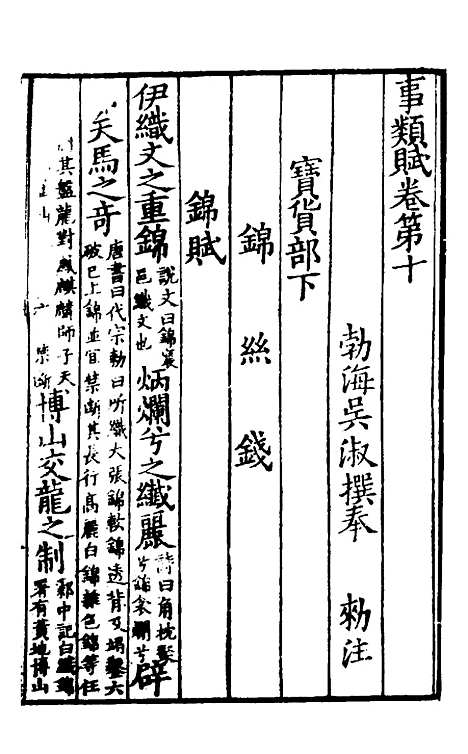 事類賦卷第十
勃海吳淑撰奉　勑注
寶貨部下
錦　絲　錢
錦賦
伊織文之重錦說文曰錦襄邑織文也炳爛兮之纖麗詩曰角枕粲兮錦衾爛兮辟
矢馬之奇唐書曰代宗勑曰所織大張錦軟錦透背及竭鑿六破已上錦並宜禁斷其長行高麗白錦雜色錦等任
其盤龍對鳳麒麟師子天禁斷博山交龍之制鄴中記曰織錦署有黃地博山